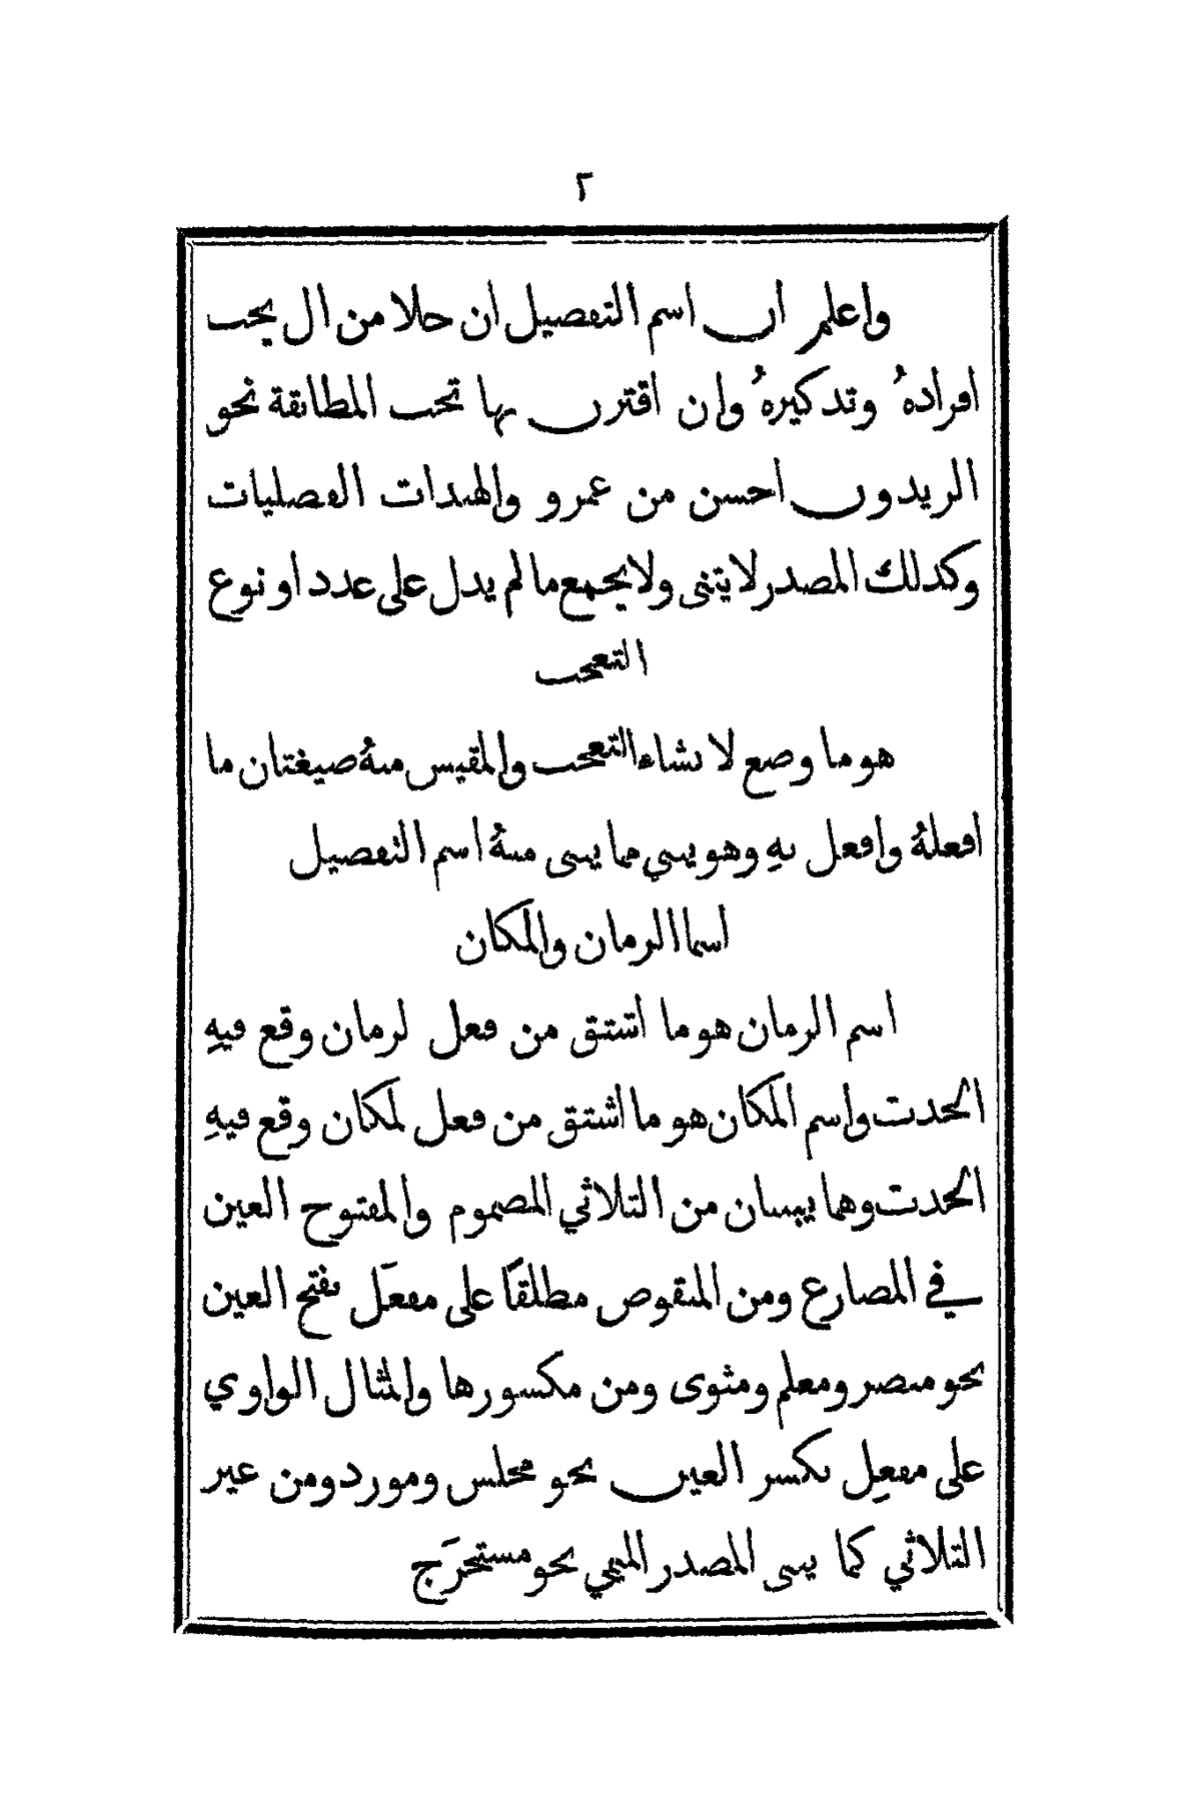 ٢
واعلم ان اسم التفضيل ان خلا من ال يجب
افرادهُ وتذكيرهُ وان اقترن بها تجب المطابقة نحو
الزيدون احسن من عمرو والهندات الفضليات
وكذلك المصدر لا يثنى ولا يجمع ما لم يدل على عدد او نوع
التعجب
هو ما وضع لانشاء التعجب والمقيس منهُ صيغتان ما
افعلهُ وافعل بهِ وهو يبني مما يبنى منهُ اسم التفضيل
اسما الزمان والمكان
اسم الزمان هو ما اشتق من فعل لزمان وقع فيهِ
الحدث واسم المكان هو ما اشتق من فعل لمكان وقع فيهِ
الحدث وهما يبنيان من الثلاثي المضموم والمفتوح العين
في المضارع ومن المنقوص مطلقًا على مفعَل بفتح العين
نحو منصر ومعلم ومثوى ومن مكسورها والمثال الواوي
على مفعِل بكسر العين نحو مجلس ومورد ومن غير
الثلاثي كما يبنى المصدر الميمي نحو مستخرَج